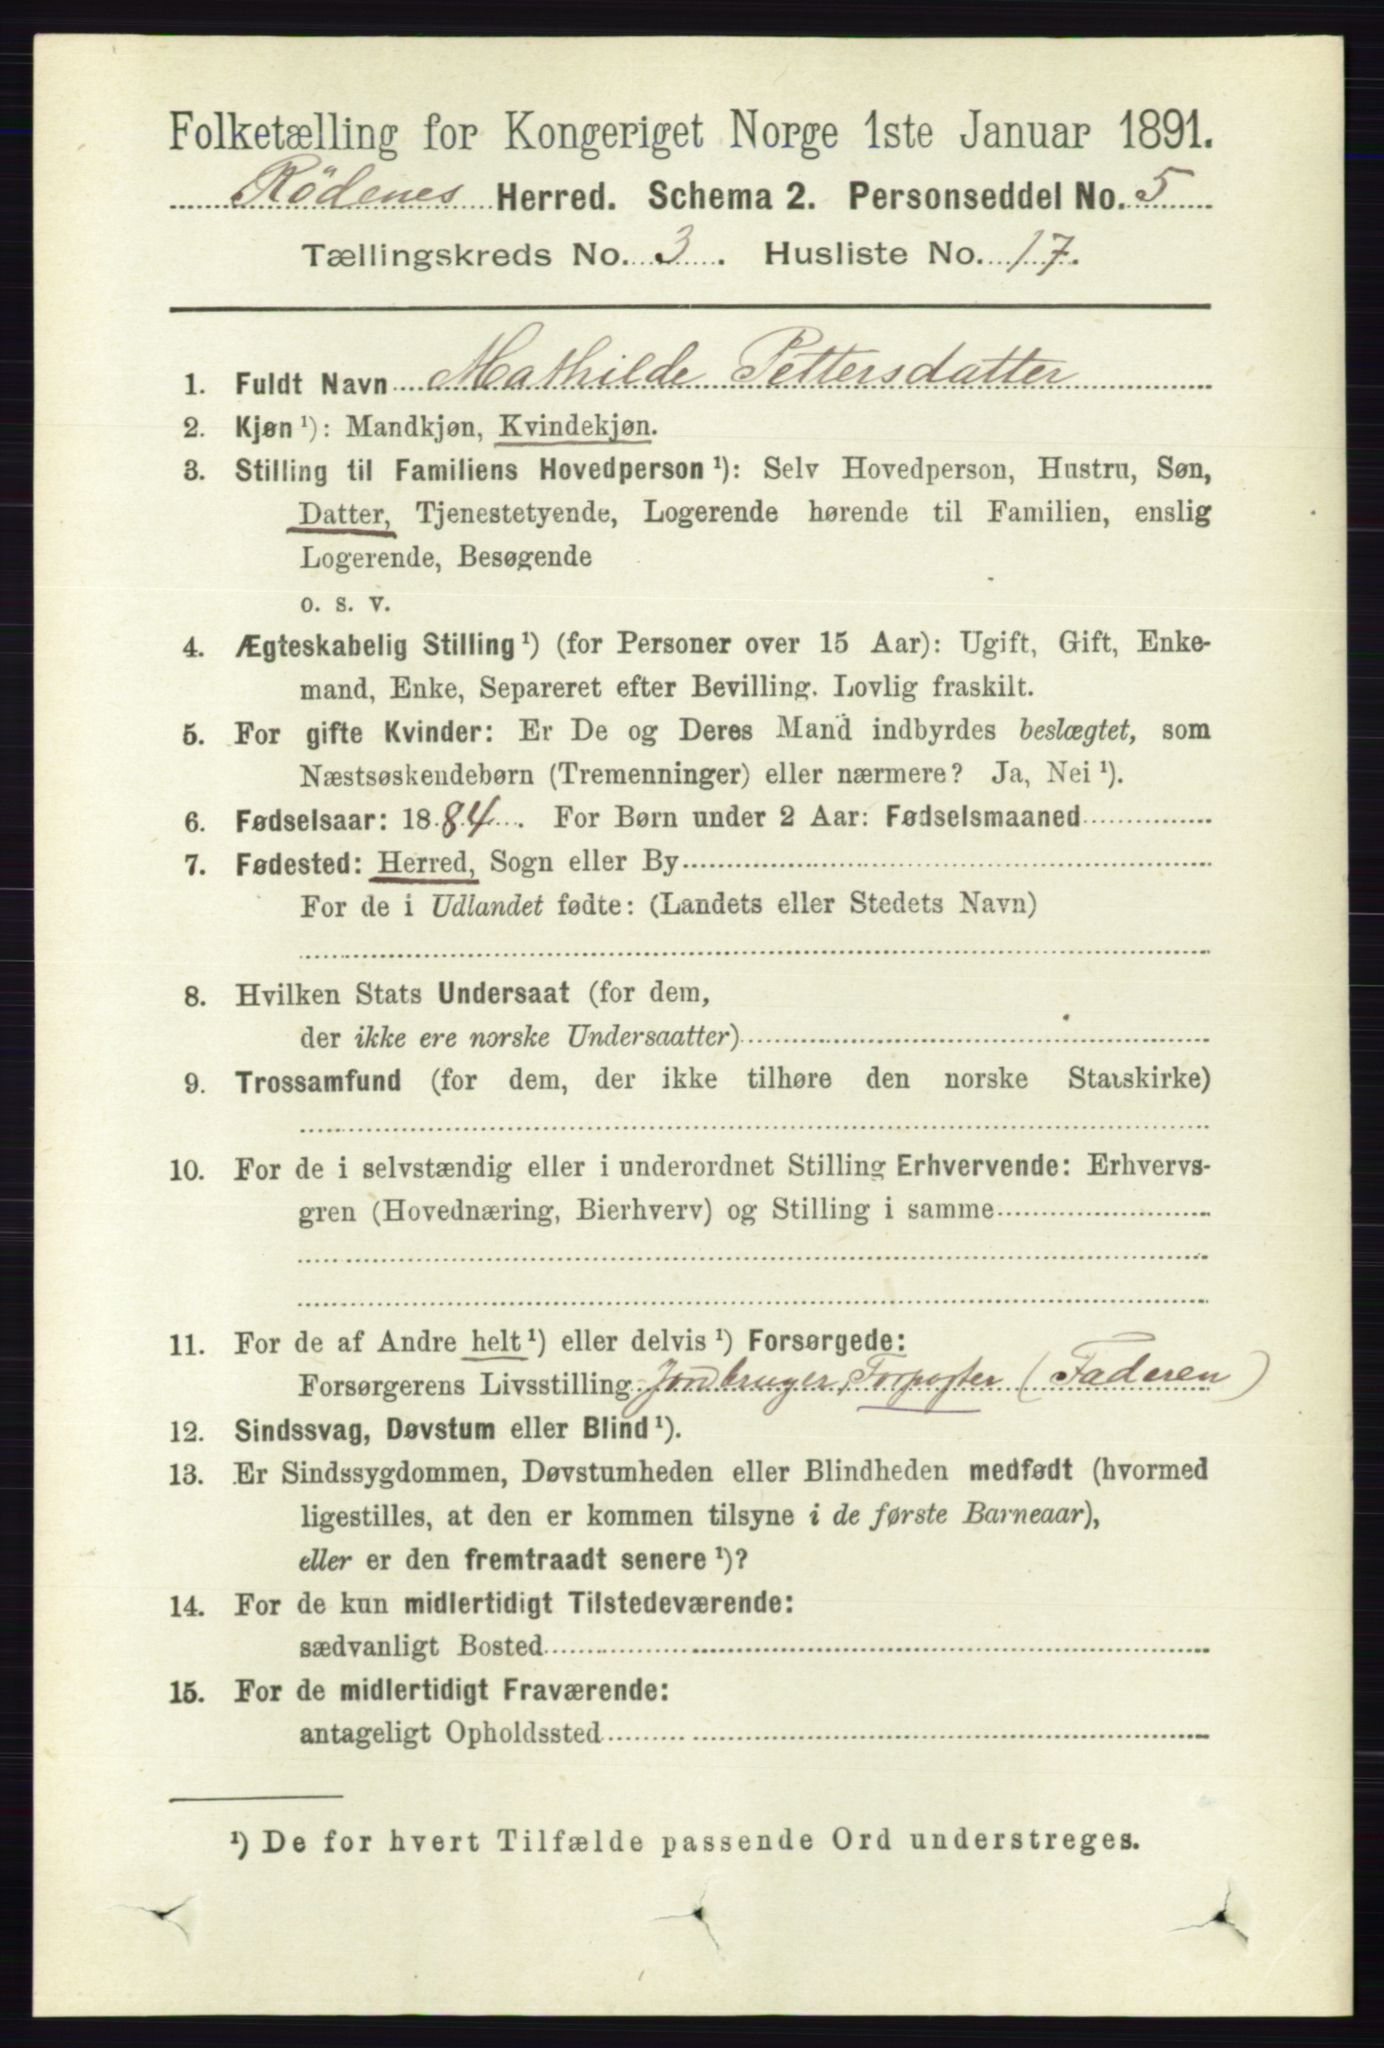 Folketælling for Kongeriget Norge 1ste Januar 1891.
Rödenes Herred. Schema 2. Personseddel No. 5
Tællingskreds No. 3. Husliste No. 17.
1. Fuldt Navn Mathilde Pettersdatter
2. Kjøn ¹): Mandkjøn, Kvindekjøn.
3. Stilling til Familiens Hovedperson ¹): Selv Hovedperson, Hustru, Søn,
Datter, Tjenestetyende, Logerende hørende til Familien, enslig
Logerende, Besøgende
o. s. v.
4. Ægteskabelig Stilling ¹) (for Personer over 15 Aar): Ugift, Gift, Enke-
mand, Enke, Separeret efter Bevilling. Lovlig fraskilt.
5. For gifte Kvinder: Er De og Deres Mand indbyrdes beslægtet, som
Næstsøskendebørn (Tremenninger) eller nærmere? Ja, Nei ¹).
6. Fødselsaar: 1884. For Børn under 2 Aar: Fødselsmaaned
7. Fødested: Herred, Sogn eller By
For de i Udlandet fødte: (Landets eller Stedets Navn)
8. Hvilken Stats Undersaat (for dem,
der ikke ere norske Undersaatter)
9. Trossamfund (for dem, der ikke tilhøre den norske Statskirke)
10. For de i selvstændig eller i underordnet Stilling Erhvervende: Erhvervs-
gren (Hovednæring, Bierhverv) og Stilling i samme
11. For de af Andre helt ¹) eller delvis ¹) Forsørgede:
Forsørgerens Livsstilling Jordbruger, (Faderen)
12. Sindssvag, Døvstum eller Blind ¹).
13. Er Sindssygdommen, Døvstumheden eller Blindheden medfødt (hvormed
ligestilles, at den er kommen tilsyne i de første Barneaar),
eller er den fremtraadt senere ¹)?
14. For de kun midlertidigt Tilstedeværende:
sædvanligt Bosted
15. For de midlertidigt Fraværende:
antageligt Opholdssted
¹) De for hvert Tilfælde passende Ord understreges.